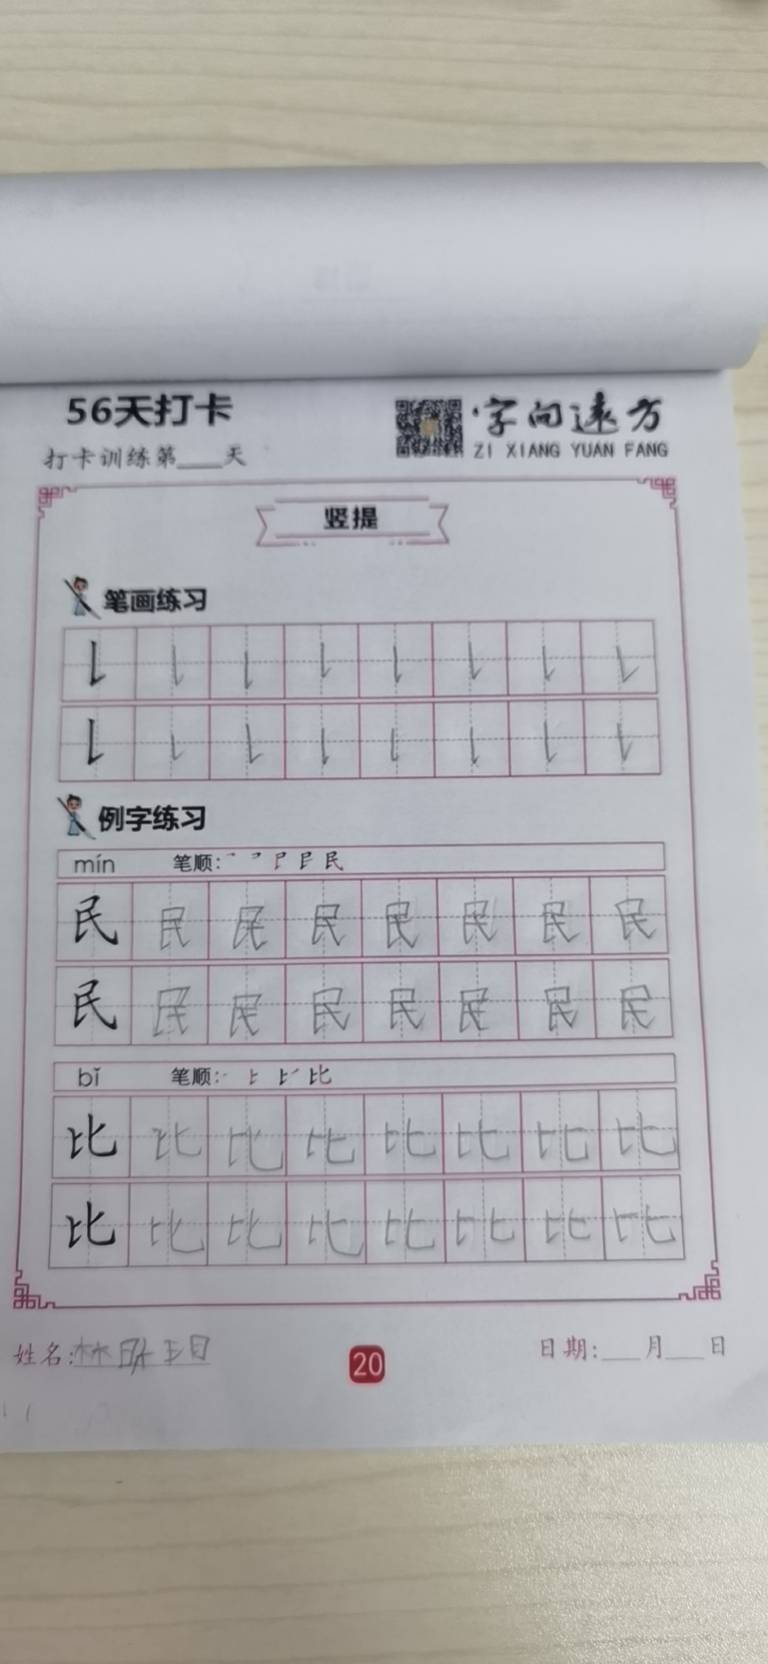 56天打卡
字向远方
打卡训练第___天
ZI XIANG YUAN FANG
竖提
笔画练习
例字练习
mín 笔顺:
民 民 民 民 民 民 民 民
民 民 民 民 民 民 民 民
bǐ 笔顺:
比 比 比 比 比 比 比 比
比 比 比 比 比 比 比 比
姓名:林
20
日期:___月___日